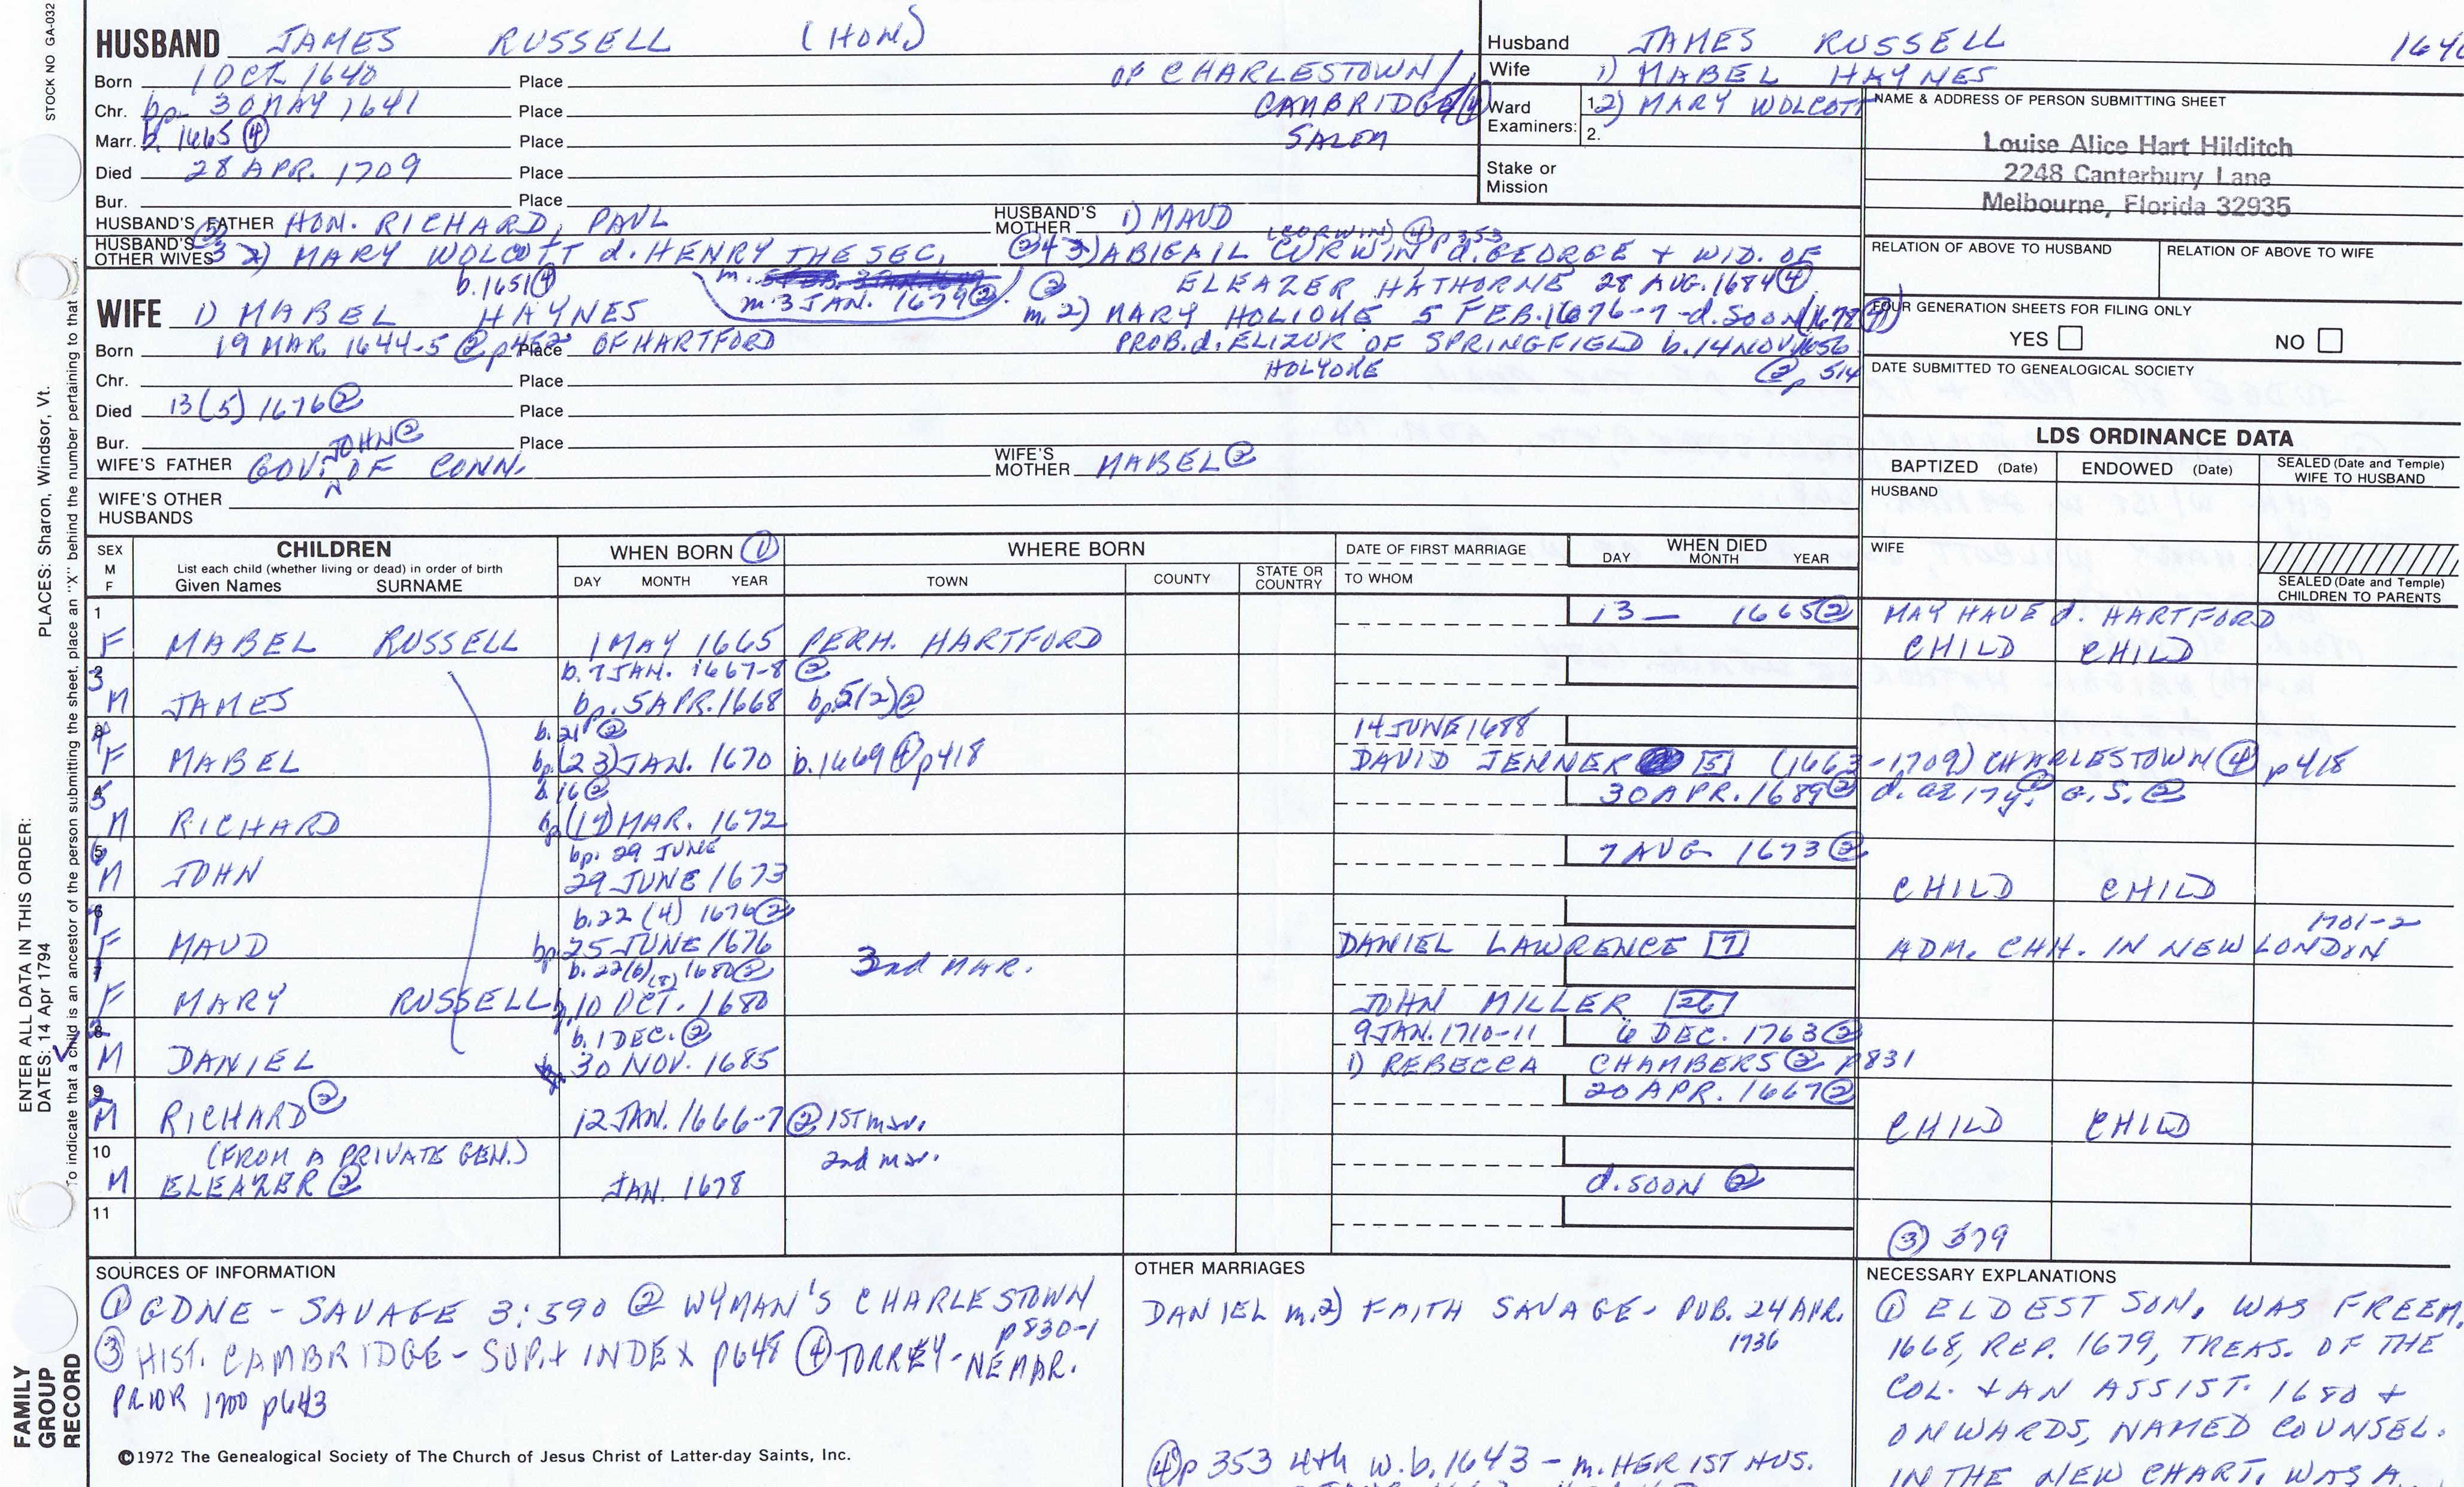 STOCK NO GA-032
HUSBAND JAMES RUSSELL (HON)
Born 1 OCT 1640 Place OF CHARLESTOWN/
Chr. bp. 30 MAY 1641 Place CAMBRIDGE ④
Marr. b. 1665 ④ Place SALEM
Died 28 APR. 1709 Place
Bur. Place
HUSBAND'S FATHER HON. RICHARD, PAUL HUSBAND'S MOTHER 1) MAUD
HUSBAND'S OTHER WIVES 3 2) MARY WOLCOTT d. HENRY THE SEC, ② 4 3) ABIGAIL CURWIN d. GEORGE + WID. OF
(CORWIN) ④ p 353
b. 1651 ④ m. 3 JAN. 1679 ②. ② ELEAZER HATHORNE 28 AUG. 1684 ④
WIFE 1) MABEL HAYNES m. 2) MARY HOLIOKE 5 FEB. 1676-7 - d. SOON (1678 ④)
Born 19 MAR. 1644-5 ② p452 Place OF HARTFORD PROB. d. ELIZUR OF SPRINGFIELD b. 14 NOV 1656
Chr. Place HOLYOKE ② p 514
Died 13 (5) 1676 ② Place
Bur. Place
WIFE'S FATHER GOV. JOHN ② OF CONN. WIFE'S MOTHER MABEL ②
WIFE'S OTHER HUSBANDS
Husband JAMES RUSSELL
Wife 1) MABEL HAYNES
Ward Examiners: 1. 2) MARY WOLCOTT
2.
Stake or Mission
NAME & ADDRESS OF PERSON SUBMITTING SHEET
Louise Alice Hart Hilditch
2248 Canterbury Lane
Melbourne, Florida 32935
RELATION OF ABOVE TO HUSBAND RELATION OF ABOVE TO WIFE
FOUR GENERATION SHEETS FOR FILING ONLY
YES NO
DATE SUBMITTED TO GENEALOGICAL SOCIETY
LDS ORDINANCE DATA
BAPTIZED (Date) ENDOWED (Date) SEALED (Date and Temple) WIFE TO HUSBAND
HUSBAND
WIFE
SEALED (Date and Temple) CHILDREN TO PARENTS
SEX M F CHILDREN WHEN BORN ① WHERE BORN DATE OF FIRST MARRIAGE WHEN DIED
List each child (whether living or dead) in order of birth
Given Names SURNAME DAY MONTH YEAR TOWN COUNTY STATE OR COUNTRY TO WHOM DAY MONTH YEAR
1 13 — 1665 ② MAY HAVE d. HARTFORD
F MABEL RUSSELL 1 MAY 1665 PERH. HARTFORD CHILD CHILD
3 b. 7 JAN. 1667-8 ②
M JAMES bp. 5 APR. 1668 bp 5(2) ②
b. 21 ② 14 JUNE 1688
F MABEL bp. (23) JAN. 1670 b. 1669 ④ p418 DAVID JENNER [5] (1663-1709) CHARLESTOWN ④ p418
5 b. 16 ② 30 APR. 1689 ② d. ae 17y. ② G.S. ②
M RICHARD bp (17) MAR. 1672
bp. 29 JUNE 7 AUG 1673 ②
M JOHN 29 JUNE 1673 CHILD CHILD
b. 22 (4) 1676 ② 1701-2
F MAUD bp. 25 JUNE 1676 DANIEL LAWRENCE [7] ADM. CHH. IN NEW LONDON
b. 22(6) (8) 1680 ② 3rd MAR.
F MARY RUSSELL 10 OCT. 1680 JOHN MILLER [26]
8 b. 1 DEC. ② 9 JAN. 1710-11 6 DEC. 1763 ②
M DANIEL 30 NOV. 1685 1) REBECCA CHAMBERS ② p831
20 APR. 1667 ②
M RICHARD ② 12 JAN. 1666-7 ② 1ST mar. CHILD CHILD
10 (FROM A PRIVATE GEN.) 2nd mar.
M ELEAZER ② JAN. 1678 d. SOON ②
11 ③ 579
SOURCES OF INFORMATION
① GDNE - SAVAGE 3:590 ② WYMAN'S CHARLESTOWN p830-1
③ HIST. CAMBRIDGE - SUP. + INDEX p648 ④ TORREY - NE MAR.
PRIOR 1700 p643
©1972 The Genealogical Society of The Church of Jesus Christ of Latter-day Saints, Inc.
OTHER MARRIAGES
DANIEL m. 2) FAITH SAVAGE - PUB. 24 APR.
1736
④ p 353 4th w. b. 1643 - m. HER 1ST HUS.
NECESSARY EXPLANATIONS
① ELDEST SON, WAS FREEM.
1668, REP. 1679, TREAS. OF THE
COL. + AN ASSIST. 1680 +
ONWARDS, NAMED COUNSEL.
IN THE NEW CHART. WAS A
ENTER ALL DATA IN THIS ORDER:
DATES: 14 Apr 1794
PLACES: Sharon, Windsor, Vt.
To indicate that a child is an ancestor of the person submitting the sheet, place an "X" behind the number pertaining to that
FAMILY
GROUP
RECORD